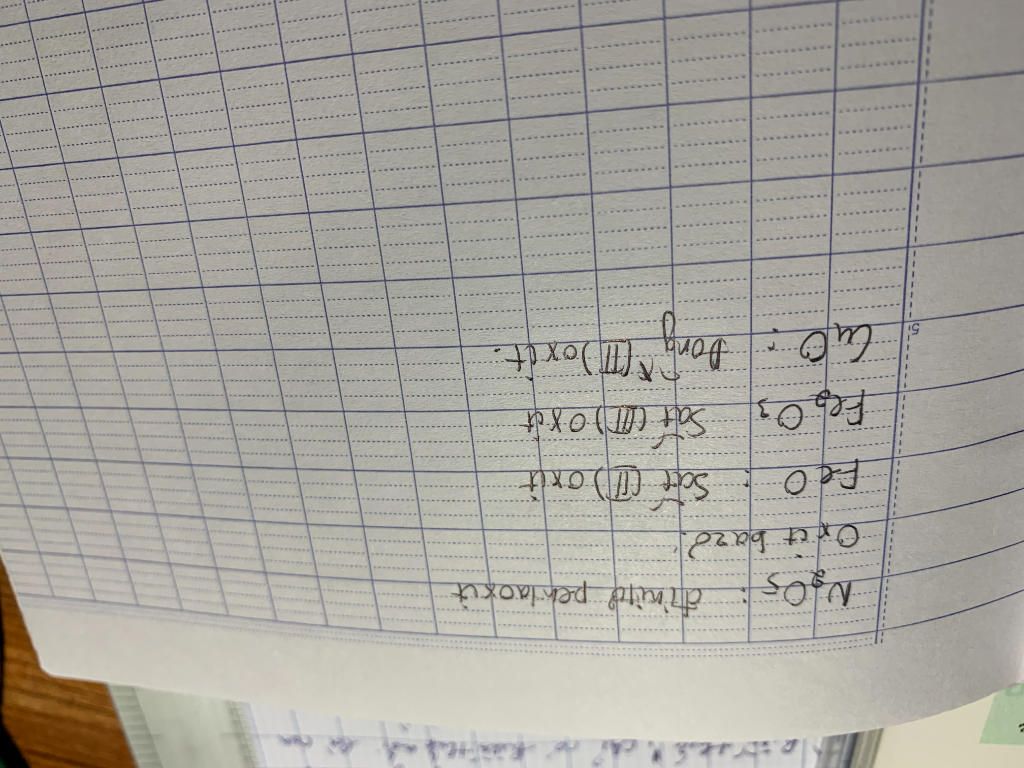 N2O5 : đinitơ pentaoxit
Oxit bazơ:
FeO : Sắt (II) oxit
Fe2O3 : Sắt (III) oxit
CuO : Đồng (II) oxit.
5